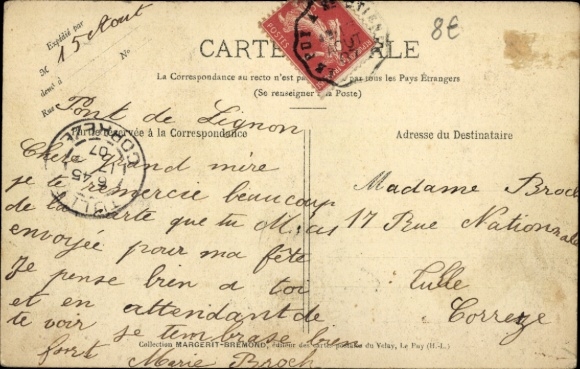 Expédié par
M 15 Aout
demt à N°
Rue
8€
POSTES
CARTE POSTALE
La Correspondance au recto n'est pas par tous les Pays Étrangers
(Se renseigner à la Poste)
Partie réservée à la Correspondance
Adresse du Destinataire
TULLE
CORREZE
6 45
17
07
Pont de Lignon
Chere Grand mère
je te remercie beaucoup
de la carte que tu M, as
envoyée pour ma fête
Je pense bien a toi
et en attendant de
te voir je t'embrasse bien
fort Marie Broch
Madame Broch
17 Rue Nationnale
Tulle
Correze
Collection MARGERIT-BRÉMOND, éditeur des cartes postales du Velay, Le Puy (H.-L.)